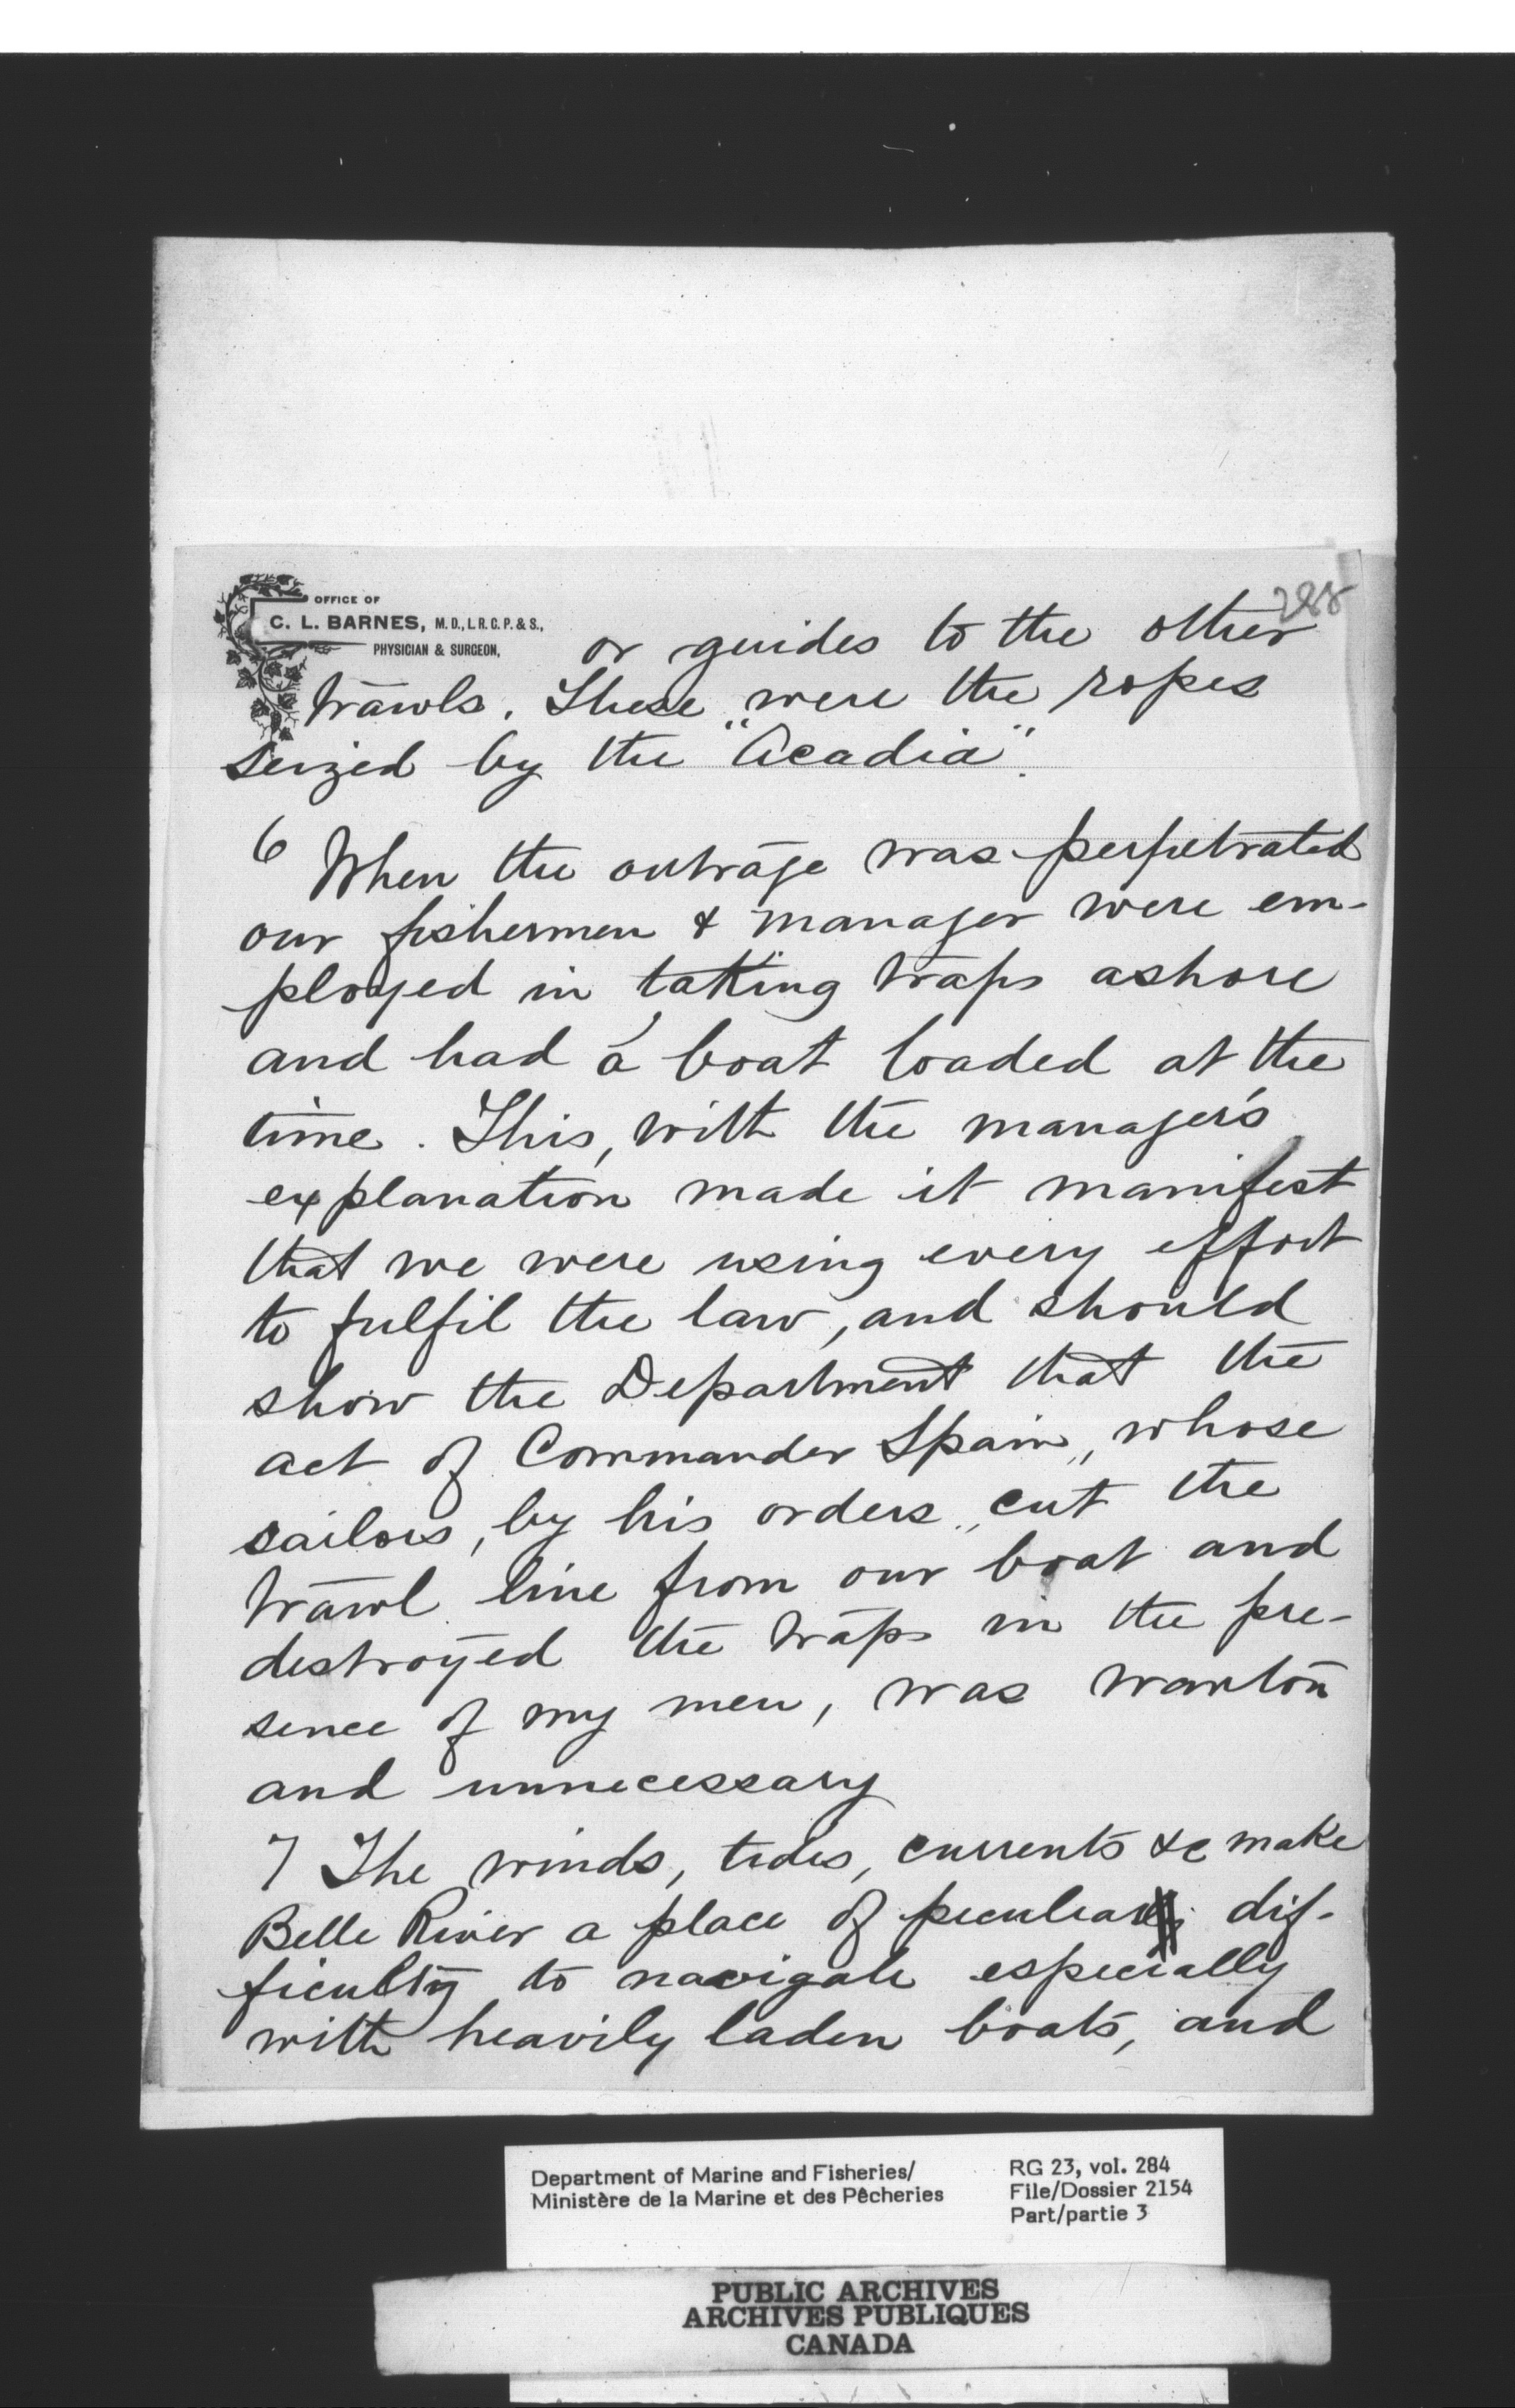 288
OFFICE OF
C. L. BARNES, M.D., L.R.C.P. & S.,
PHYSICIAN & SURGEON,
or guides to the other
trawls. These were the ropes
seized by the "Acadia".
6 When the outrage was perpetrated
our fishermen & manager were em-
ployed in taking traps ashore
and had a boat loaded at the
time. This, with the manager's
explanation made it manifest
that we were using every effort
to fulfil the law, and should
show the Department that the
act of Commander Spain, whose
sailors, by his orders, cut the
trawl line from our boat and
destroyed the traps in the pre-
sence of my men, was wanton
and unnecessary
7 The winds, tides, currents &c make
Belle River a place of peculiar dif-
ficulty to navigate especially
with heavily laden boats, and
Department of Marine and Fisheries/
Ministère de la Marine et des Pêcheries
RG 23, vol. 284
File/Dossier 2154
Part/partie 3
PUBLIC ARCHIVES
ARCHIVES PUBLIQUES
CANADA